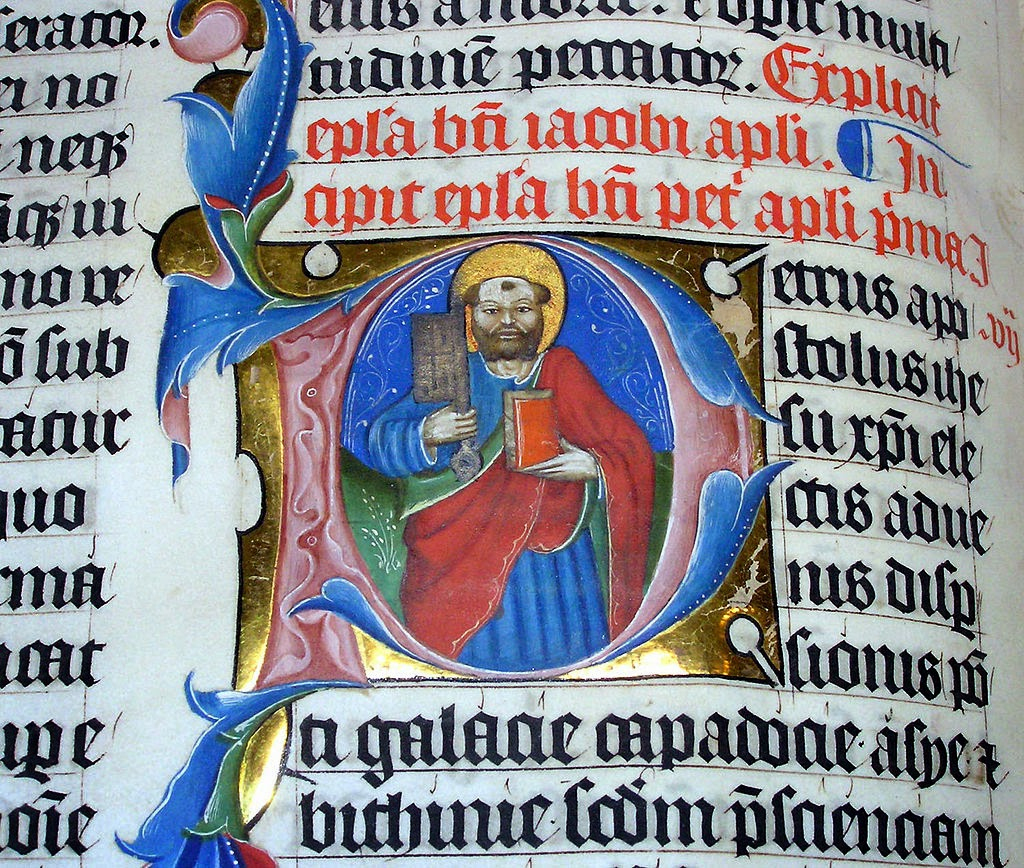 serator.
ei no
neqȝ
iqȝ iu
no ve
ō sub
atur
quo
rma
icat
ipe
oīe
eius a morte. ⁊ opit multi
tudinē peccatoꝝ. Explicit
epl'a bti̅ iacobi apli. In
cipit epl'a bti̅ pet' apli p'ma I
Petrus apo
stolus ihe
su xp̄i ele
ctis adue
nis disp
sionis pō
ti galacie capadocie· asye ⁊
bithinie· scd̄m p̄scienciam